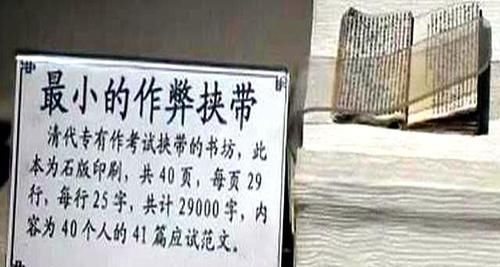 最小的作弊挟带
清代专有作考试挟带的书坊，此
本为石版印刷，共40页，每页29
行，每行25字，共计29000字，内
容为40个人的41篇应试范文。